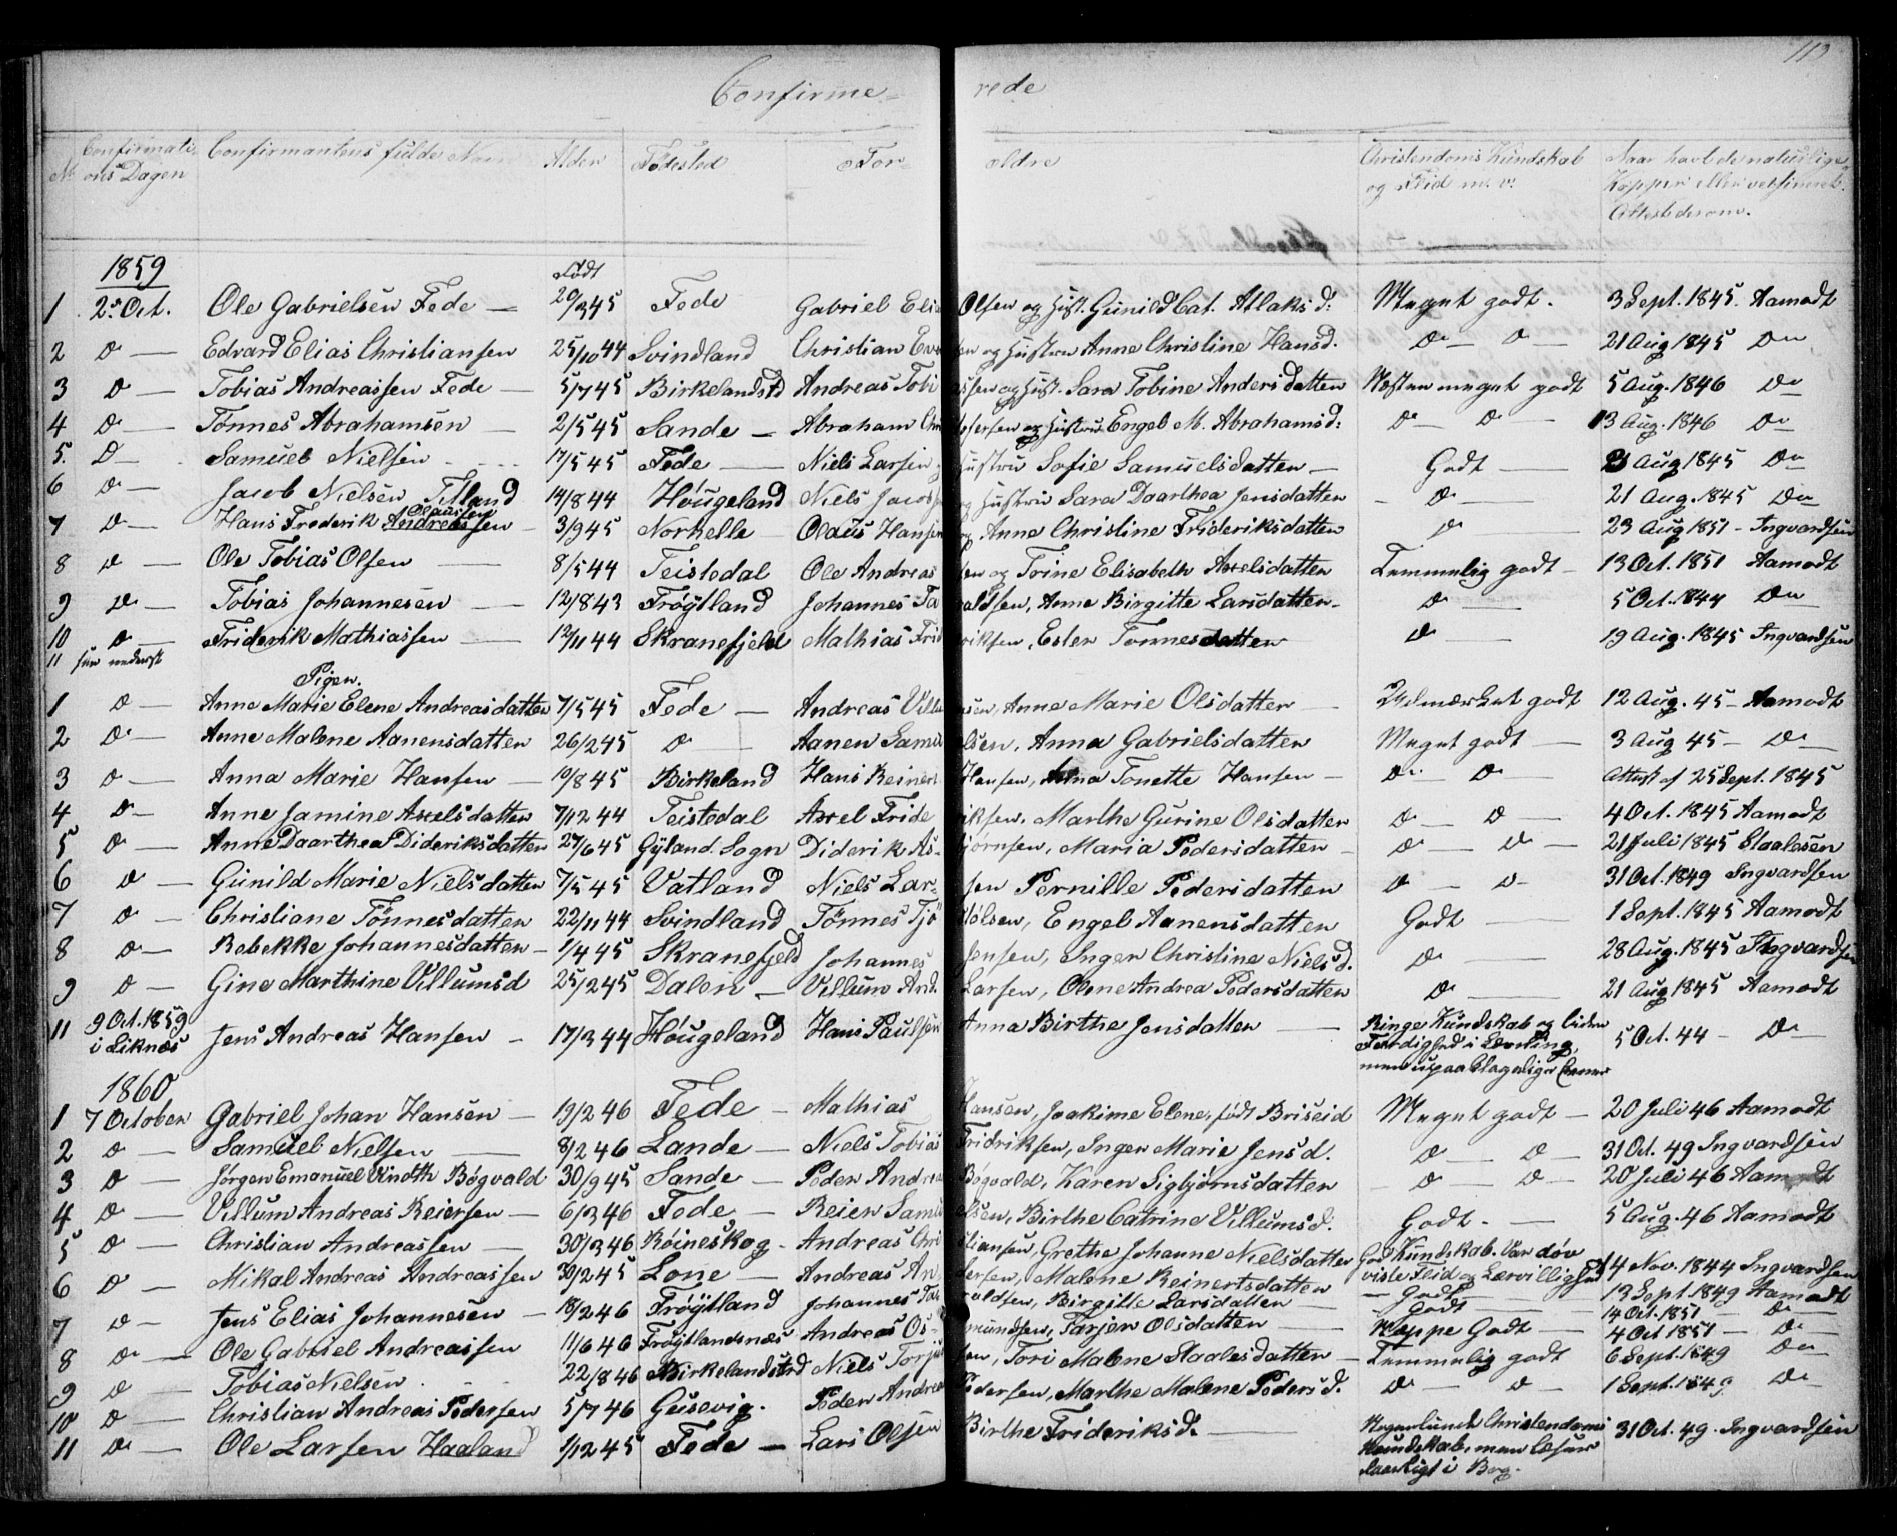 113
Confirme- rede
No Confirmations Dagen Confirmantens fulde Navn Alder Fødested For- ældre Christendoms Kundskab og Flid m. v. Naar havt de naturlige Kopper eller vaksineret. Attest derom.
1859 Født
1 2den Oct. Ole Gabrielsen Fede — 20/3 45 Fede Gabriel Elias Olsen og Hust. Gunild Cat. Atlaksd: Meget godt. 3 Sept. 1845. Aamodt
2 Do — Edvard Elias Christiansen 25/10 44 Svindland Christian Ev sen og Hustru Anne Christine Hansd. Do — Do — 21 Aug 1845 Do
3 Do — Tobias Andreassen Fede — 5/7 45 Birkelandstd Andreas Tobi assen og Hust. Sara Tobine Andersdatten Næsten meget godt 5 Aug. 1846 Do
4 Do — Tønnes Abrahamsen — 2/5 45 Sande — Abraham Chri stofersen og Hustru Engel M. Abrahamsd: Do — Do — 13 Aug. 1846 Do
5. Do — Samuel Nielsen 17/5 45 Fede — Niels Larsen og Hustru Sofie Samuelsdatten — Godt — 3 Aug 1845 Do
6 Do — Jacob Nielsen Titland 14/8 44 Høugeland Niels Jacobsen og Hustru Sara Daarthea Jensdatten — Do — 21 Aug. 1845 Do
Olaussen
7 Do — Hans Frederik Andreassen — 3/9 45 Norkelle — Olaus Hansen og Anne Christine Frideriksdatten Do — 23 Aug 1851 — Ingvardsen
8 Do — Ole Tobias Olsen — 8/5 44 Teistedal Ole Andreas sen og Trine Elisabeth Axelsdatten Temmelig godt — 13 Oct. 1851 Aamodt
9 Do — Tobias Johannesen — 12/8 43 Frøytland Johannes Ta raldsen, Anne Birgitte Larsdatten — Do — 5 Oct. 1844 Do
10 Do — Friderik Mathiassen — 12/11 44 Skranefjeld Mathias Frid riksen, Ester Tønnesdatten Do — 19 Aug. 1845 Ingvardsen
11 see nederst
Piger.
1 Do — Anne Marie Elene Andreasdatten 7/5 45 Fede — Andreas Villu msen, Anne Marie Olsdatter — Udmærket godt 12 Aug. 45 — Aamodt
2 Do — Anne Malene Aanensdatten 26/2 45 Do — Aanen Samu elsen, Anna Gabrielsdatten Meget godt — 3 Aug 45 — Do
3 Do — Anna Marie Hansen — 19/8 45 Birkeland Hans Reinert Hansen, Anna Tonette Hansen — Do — Do — Attest af 25 Sept. 1845
4 Do — Anne Jamine Axelsdatten 7/12 44 Teistedal Axel Fride riksen, Marthe Gurine Olsdatter Do — Do — 4 Oct. 1845 Aamodt
5 Do — Anne Daarthea Dideriksdatten 27/6 45 Gyland Sogn Diderik As- bjørnsen, Maria Pedersdatten — Do — Do — 21 Juli 1845 Staalesen
6 Do — Gunild Marie Nielsdatten 7/5 45 Vatland Niels Lar- sen Pernille Pedersdatten Do — Do — 31 Oct. 1849 Ingvardsen
7 Do — Christiane Tønnesdatten 22/11 44 Svindland Tønnes Tjø stølsen, Engel Aanensdatten Godt — 1 Sept. 1845 Aamodt
8 Do — Rebekke Johannesdatten — 1/4 45 Skranefjeld Johannes Jensen, Inger Christine Nielsd. Do — 28 Aug. 1845 Ingvardsen
9 Do — Gine Marthine Villumsd 25/2 45 Dalen — Villum And. Larsen, Olene Andrea Pedersdatten Do — 21 Aug 1845 Aamodt
11 9 Oct. 1859 i Liknæs Jens Andreas Hansen — 17/3 44 Høugeland Hans Paulsen Anna Birthe Jensdatten — Ringe Kundskab og liden Færdighed i Læsning, men upaaklageliger Evner 5 Oct. 44 — Do
1860
1 7 October Gabriel Johan Hansen — 19/2 46 Fede — Mathias Hansen, Joakime Elene, født Briseid Meget godt — 20 Juli 46 Aamodt
2 Do — Samuel Nielsen — 8/2 46 Lande — Niels Tobias Fridriksen, Inger Marie Jensd. Do — Do — 31 Oct. 49 Ingvardsen
3 Do — Jørgen Emanuel Vinoth Bøgvald 30/9 45 Sande — Peder Andrea Bøgvald, Karen Sigbjørnsdatten — Do — Do — 20 Juli 46 Aamodt
4 Do — Villum Andreas Reiersen — 6/3 46 Fede — Reier Samu elsen, Birthe Catrine Villumsd. Godt. — 5 Aug. 46 Aamodt
5 Do — Christian Andreassen — 30/3 46 Røineskog — Andreas Chri stiansen, Grethe Johanne Nielsdatten God Kundskab. Var døv viste Flid og Lærvillighed 14 Nov. 1844 Ingvardsen
6 Do — Mikal Andreas Andreassen 30/2 45 Lone — Andreas An dersen, Malene Reinertsdatten — Godt — 13 Sept 1849 Aamodt
7 Do — Jens Elias Johannesen — 18/2 46 Frøytland Johannes Ta raldsen, Birgitte Larsdatten — Godt — 14 Oct. 1851 — Do
8 Do — Ole Gabriel Andreassen 11/6 46 Frøytlandsnæs Andreas Os- mundsen, Tarjer Olsdatten — Neppe Godt — 4 Oct 1851 — Do
9 Do — Tobias Nielsen 22/8 46 Birkelandstrd Niels Torju sen, Tori Malene Staalesdatten — Temmelig godt 6 Sept. 1849 Do
10 Do — Christian Andreas Pedersen 5/7 46 Gusevig. Peder Andrea Pedersen, Marthe Malene Pedersd. Do — Do — 1 Sept. 1849 Do
11 Do — Ole Larsen Haaland 1/12 45 Fede — Lars Olsen Birthe Frideriksd. — Nogenlunde Christendoms Kundskab, men læser daarligt i Bog. 31 Oct. 49. Ingvardsen